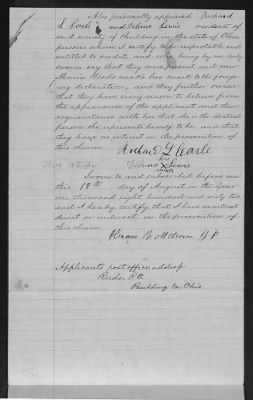 Also personally appeared Richard
L Carle and Delino Lewis residents of
said county of Paulding in the state of Ohio
persons whom I certify to be respectable and
entitled to credit, and who being by me duly
sworn say that they were present and saw
Maria Woods make her mark to the forego-
ing declaration, and they further swear
that they have every reason to believe from
the appearance of the applicant and their
acquaintance with her that she is the identical
person she represents herself to be and that
they have no interest in the prosecution of
this claim.
Richard L Carle
his
X Lewis
mark
Sworn to and subscribed before me
this 18th day of August in the year
one thousand eight hundred and sixty two
and I hereby certify that I have no interest
direct or indirect in the prosecution of
this claim
J P
Applicants post office address
Reids P.O.
Paulding Co. Ohio